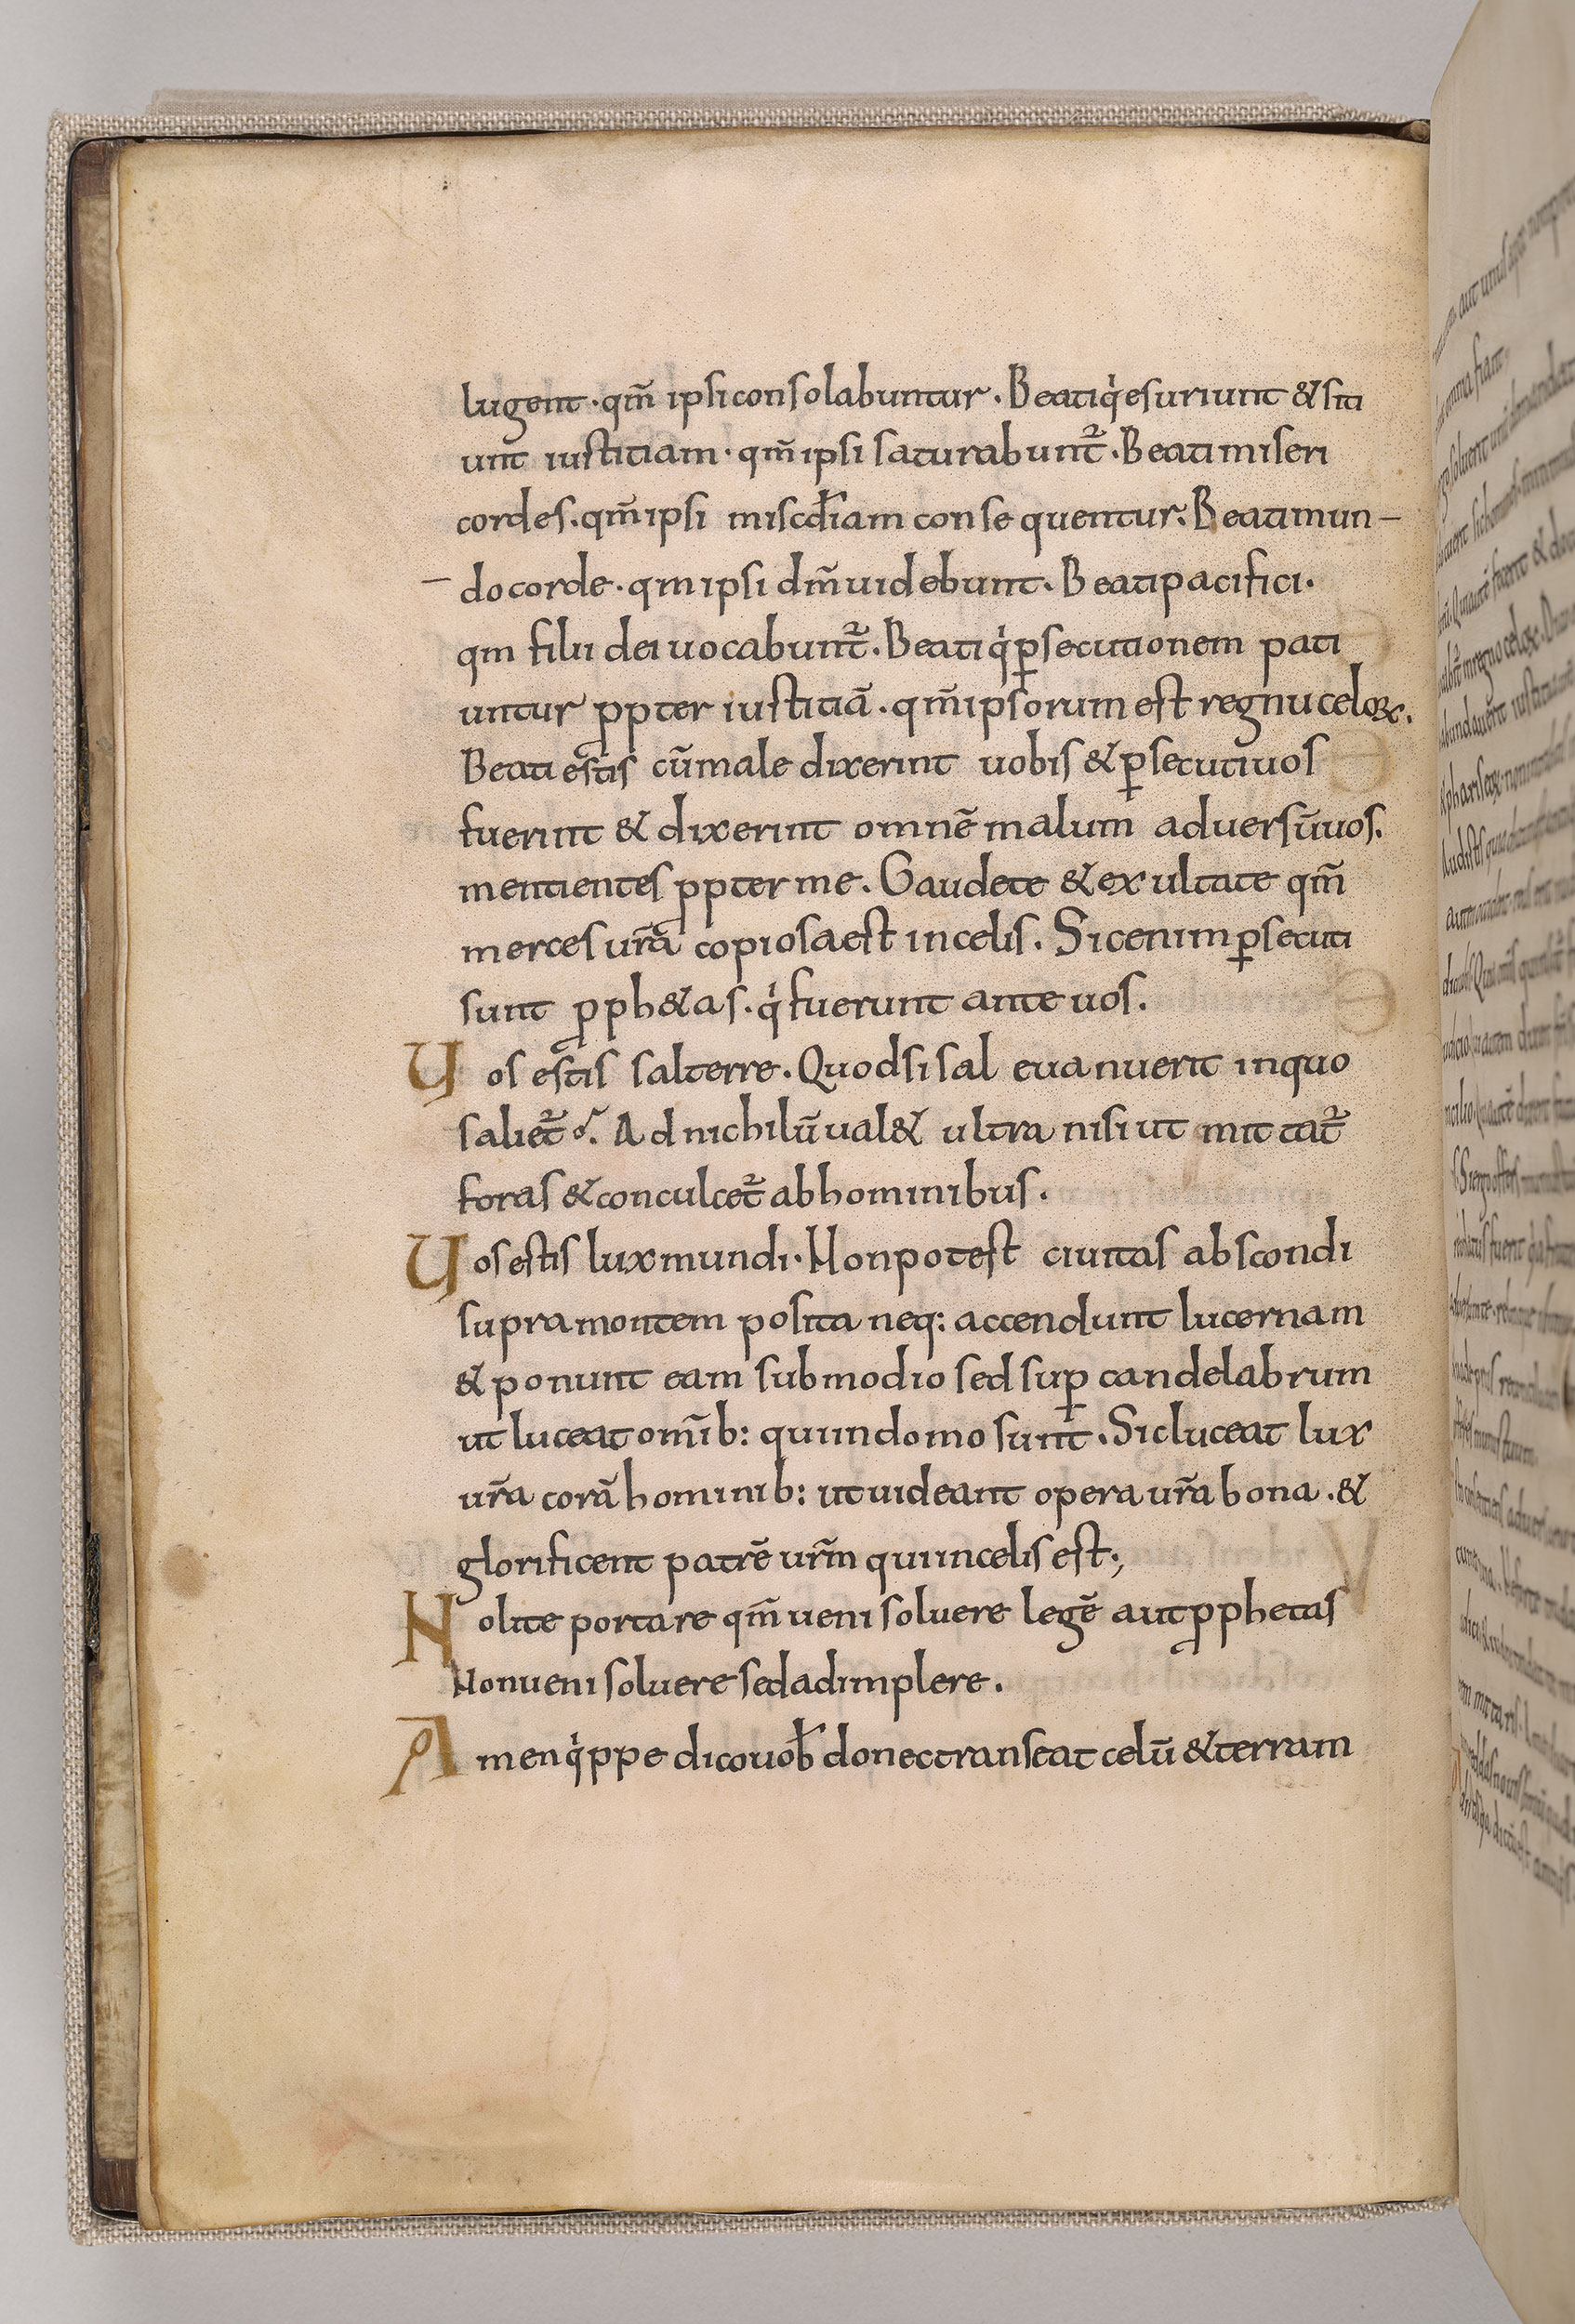 lugent · qm̃ ipsi consolabuntur · Beati q̇ esuriunt & siti
unt iustitiam · qm̃ ipsi saturabunt̃ · Beati miseri
cordes · qm̃ ipsi miscđiam consequentur · Beati mun-
-do corde · qm ipsi dm̃ uidebunt · Beati pacifici ·
qm filii dei uocabunt̃ · Beati q̇ p̱secutionem pati
untur ꝓpter iustitiā · qm̃ ipsorum est regnu celoꝝ.
Beati estis cū male dixerint uobis & p̱secuti uos
fuerint & dixerint omnē malum aduersū uos.
mentientes ꝓpter me. Gaudete & exultate qm̃
merces ur̃a copiosa est in celis. Sic enim p̱secuti
sunt ꝓph&as · q̇ fuerunt ante uos.
Uos estis sal terre. Quod si sal euanuerit in quo
saliet̃? Ad nichilū ual& ultra nisi ut mittat̃
foras & conculcet̃ ab hominibus.
Uos estis lux mundi · Non potest ciuitas abscondi
supra montem posita neq: accendunt lucernam
& ponunt eam sub modio sed sup̱ candelabrum
ut luceat om̃ib: qui in domo sunt. Sic luceat lux
ur̃a corā hominib: ut uideant opera ur̃a bona. &
glorificent patrē urm̃ qui in celis est;
Nolite portare qm̃ ueni soluere legē aut ꝓphetas
Non ueni soluere sed adimplere.
Amen q̇ppe dico uob̄ donec transeat celū & terram